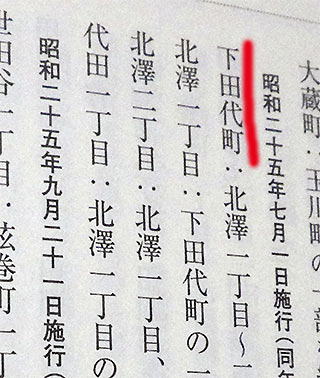 大蔵町：玉川町の一部を
昭和二十五年七月一日施行（同年
下田代町：北澤一丁目〜一
北澤一丁目：下田代町の一
北澤二丁目：北澤一丁目、
代田一丁目：北澤一丁目の
昭和二十五年九月二十一日施行（
世田谷一丁目：弦巻町一丁